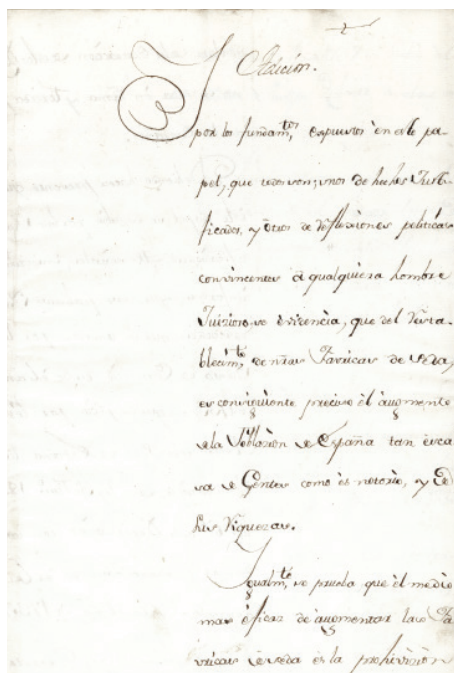 2
Adición.
por los fundam.tos expuestos en este pa-
pel, que todos son; unos de hechos Justi-
ficados, y otros de reflexiones politicas
convincentes á qualquiera hombre
Juizioso se evidencia, que del resta-
blecim.to de nras Favricas de seda,
es consiguiente preciso él augmento
de la Poblazion de España tan esca-
sa de Gentes como és notorio, y de
sus riquezas.
Igualm.te se prueba que él medio
mas éficaz de augmentar las Fa
vricas de seda és la prohivizion